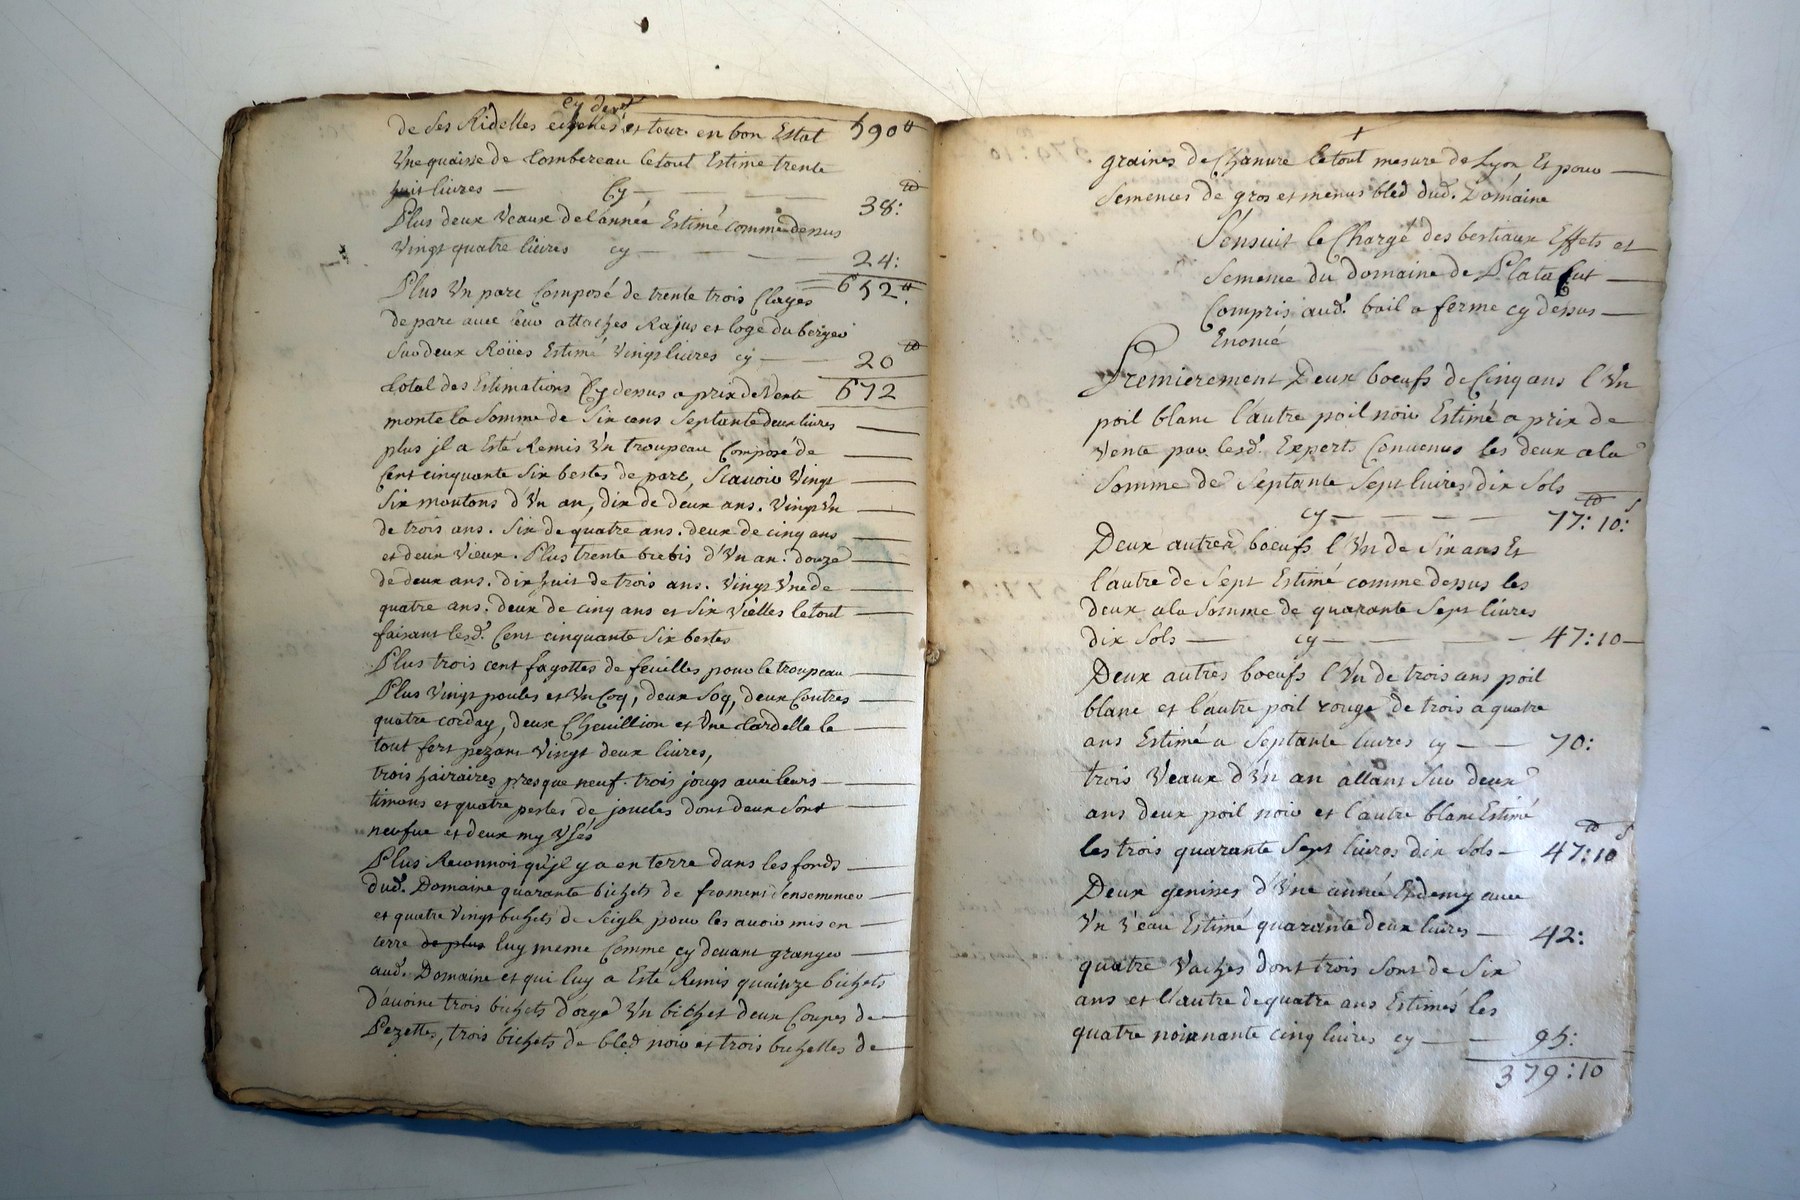 Cy der.t
de ses Ridelles et tour en bon Estat 590tt
Vne quaisse de tombereau le tout Estimé trente
huit livres — Cy — 38:
Plus deux Veaux de l'année Estimé comme dessus
Vingt quatre livres cy — 24:
652tt
Plus Vn parc Composé de trente trois Clayes
de parc avec leur attaches Rajus et loge du berger
sur deux Roües Estimé Vingt livres cy — 20tt
total des Estimations Cy dessus a prix de Vente 672
monte la Somme de Six cens Septante deux livres
plus jl a Esté Remis Vn troupeau Composé de
Cent cinquante Six bestes de parc, Scavoir Vingt
Six moutons d'Vn an, dix de deux ans. Vingt Vn
de trois ans. Six de quatre ans. deux de cinq ans
et deux Vieux. Plus trente brebis d'Vn an. douze
de deux ans. dix huit de trois ans. Vingt Vne de
quatre ans. deux de cinq ans et Six Vielles le tout
faisant lesd. Cent cinquante Six bestes
Plus trois cent fagottes de feuilles pour le troupeau
Plus Vingt poules et Vn Coq, deux Soq, deux Coutres
quatre corday, deux Cheuillion et Vne tardelle le
tout fert pezant Vingt deux livres,
trois hairaires presque neuf. trois jougs avec leurs
timons et quatre perles de joucles dont deux Sont
neufue et deux my Vsés
Plus Reconnois qu'jl y a en terre dans les fonds
dud. Domaine quarante bichets de froment d'ensemencer
et quatre Vingt bichets de Seigle pour les avoir mis en
terre de plus luy meme Comme cy devant granger
aud. Domaine et qui luy a Esté Remis quainze bichets
d'avoine trois bichets d'orge Vn bichet deux Coupes de
Pezettes, trois bichets de bled noir et trois bichettes de
graines de Chanvre le tout mesure de Lyon Et pour
Semences de gros et menus bled dud. Domaine
S'ensuit le Chargé des bestiaux Effets et
Semence du domaine de
Compris aud. bail a ferme cy dessus
Enoncé
Premierement Deux boeufs de Cinq ans l'Vn
poil blanc l'autre poil noir Estimé a prix de
Vente par lesd. Experts Convenus les deux a la
Somme de Septante Sept livres dix Sols
cy — 77:10:s
Deux autres boeufs l'Vn de Six ans Et
l'autre de Sept Estimé comme dessus les
deux a la Somme de quarante Sept livres
dix Sols — cy — 47:10
Deux autres boeufs l'Vn de trois ans poil
blanc et l'autre poil rouge de trois a quatre
ans Estimé a Septante livres cy — 70:
trois Veaux d'Vn an allant Sur deux
ans deux poil noir et l'autre blanc Estimé
les trois quarante Sept livres dix Sols — 47:10 s
Deux genisses d'Vne année Et demy avec
Vn Veau Estimé quarante deux livres — 42:
quatre Vaches dont trois Sont de Six
ans et l'autre de quatre ans Estimés les
quatre nonante cinq livres cy — 95:
379:10